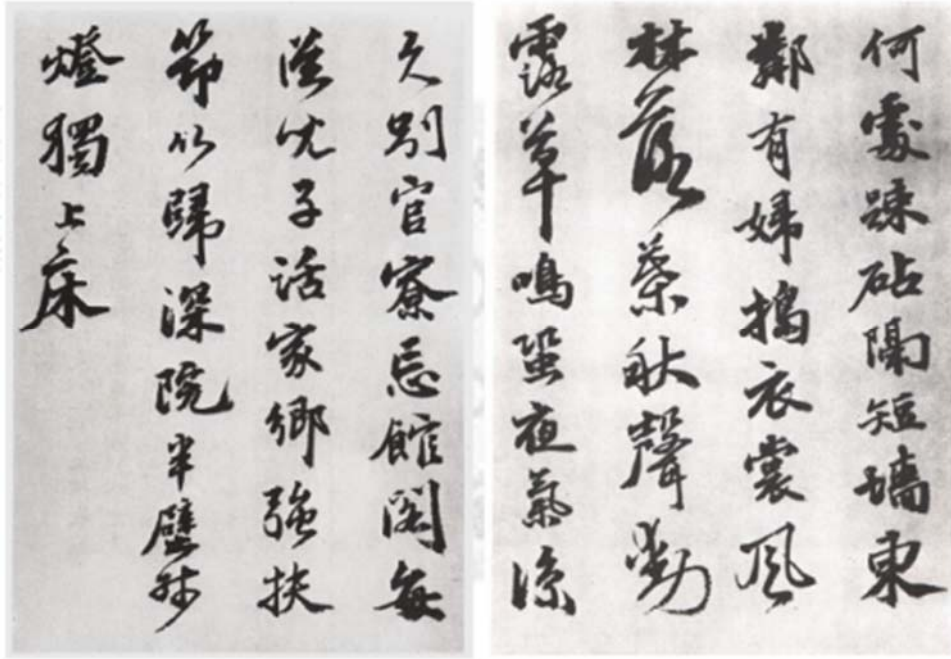 何處疎砧隔短墻東
鄰有婦搗衣裳風
林落葉秋聲動
露草鳴蛩夜氣涼
久別官寮忘館閣每
從兒子話家鄉強扶
筇以歸深院半壁殘
燈獨上床